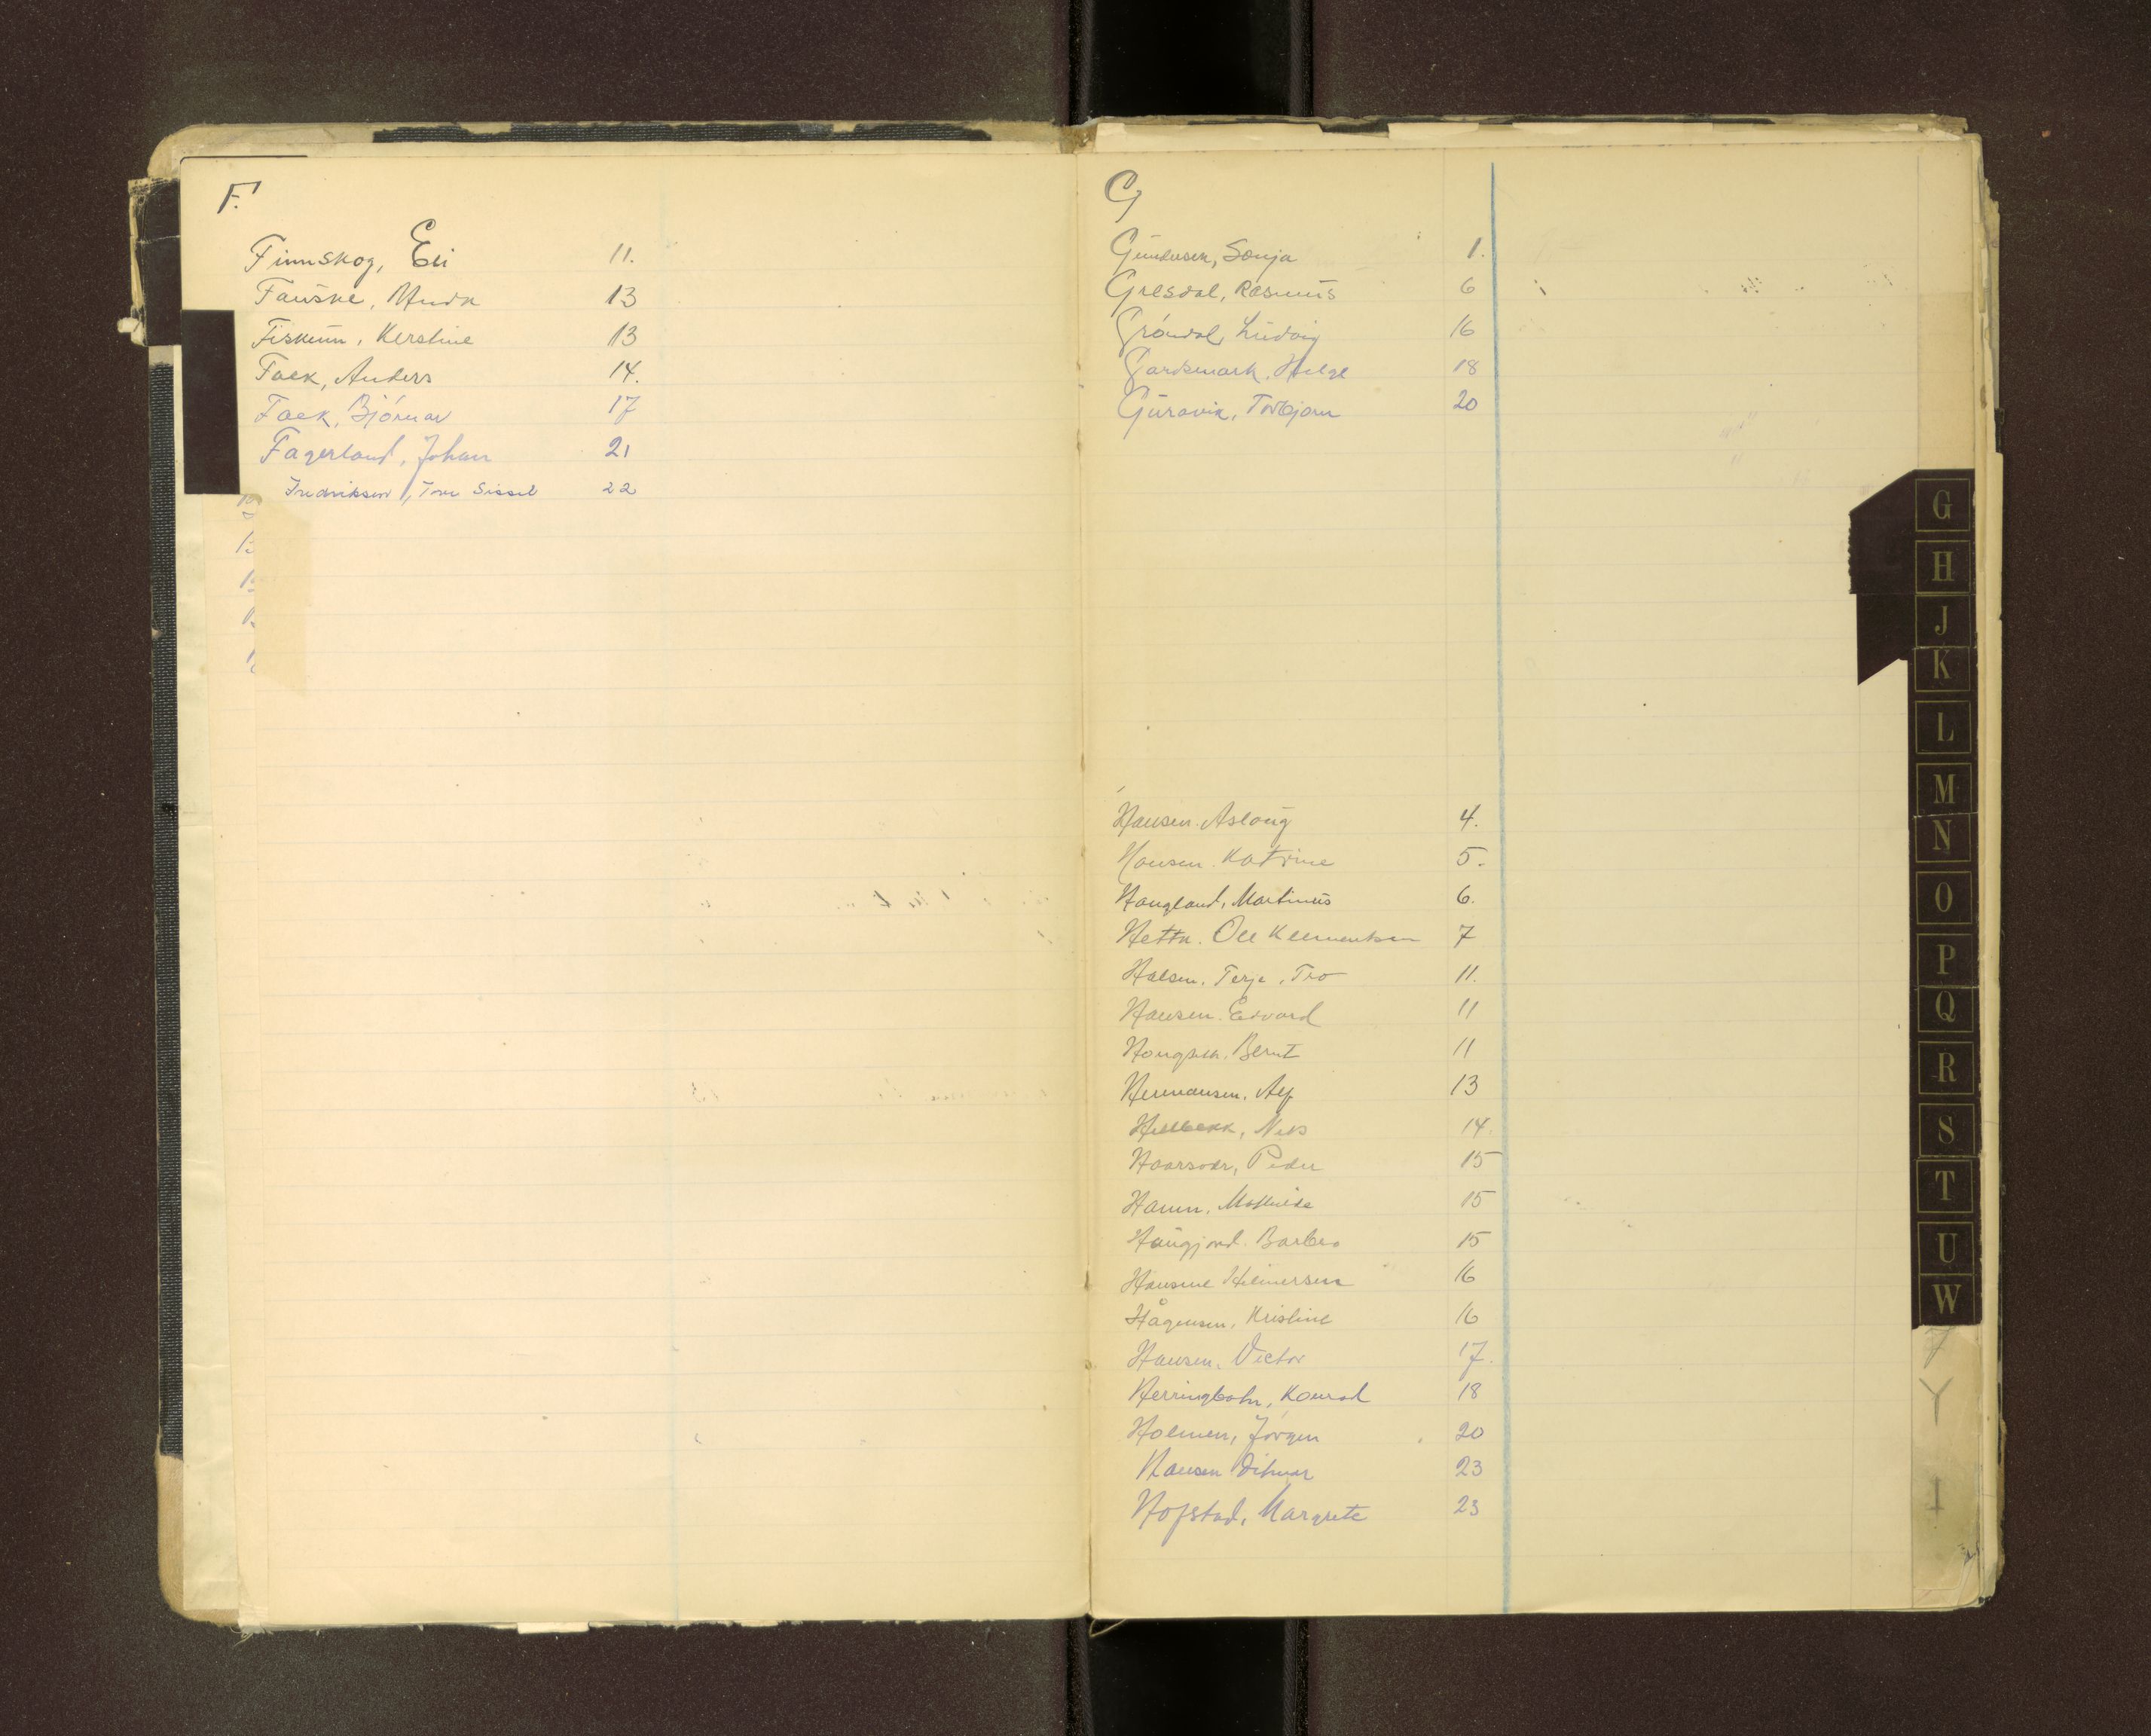 F.
Finnskog, Eli 11.
Fauske, 13
Fiskum, Kerstine 13
Falk, Anders 14.
Falk, Bjórnar 17
Fagerland, Johan 21
Fredriksen, Tove Sissel 22
G
Gundersen, Sonja 1.
Gresdal, Rasmus 6
Gróndal, Ludvig 16
Gardsmark, Helge 18
Guravik, Torbjørn 20
Hansen. Aslaug 4.
Hansen. Katrine 5.
Haugland, Martinus 6.
Ole Klementsen 7
Halsen. Terje. 11.
Hansen. Edvard 11
Haugnes. Bernt 11
Hermansen. Alf 13
Hellbekk, Nils 14.
Peder 15
Hamn. Mathilde 15
Haugjord. Barbro 15
Hansine Hilmersen 16
Hågensen, Kristine 16
Hansen, Victor 17.
Herringbotn, Konrad 18
Holmen, Jørgen 20
Hansen Ditmar 23
Hofstad, Margrete 23
G
H
J
K
L
M
N
O
P
Q
R
S
T
U
W
Y